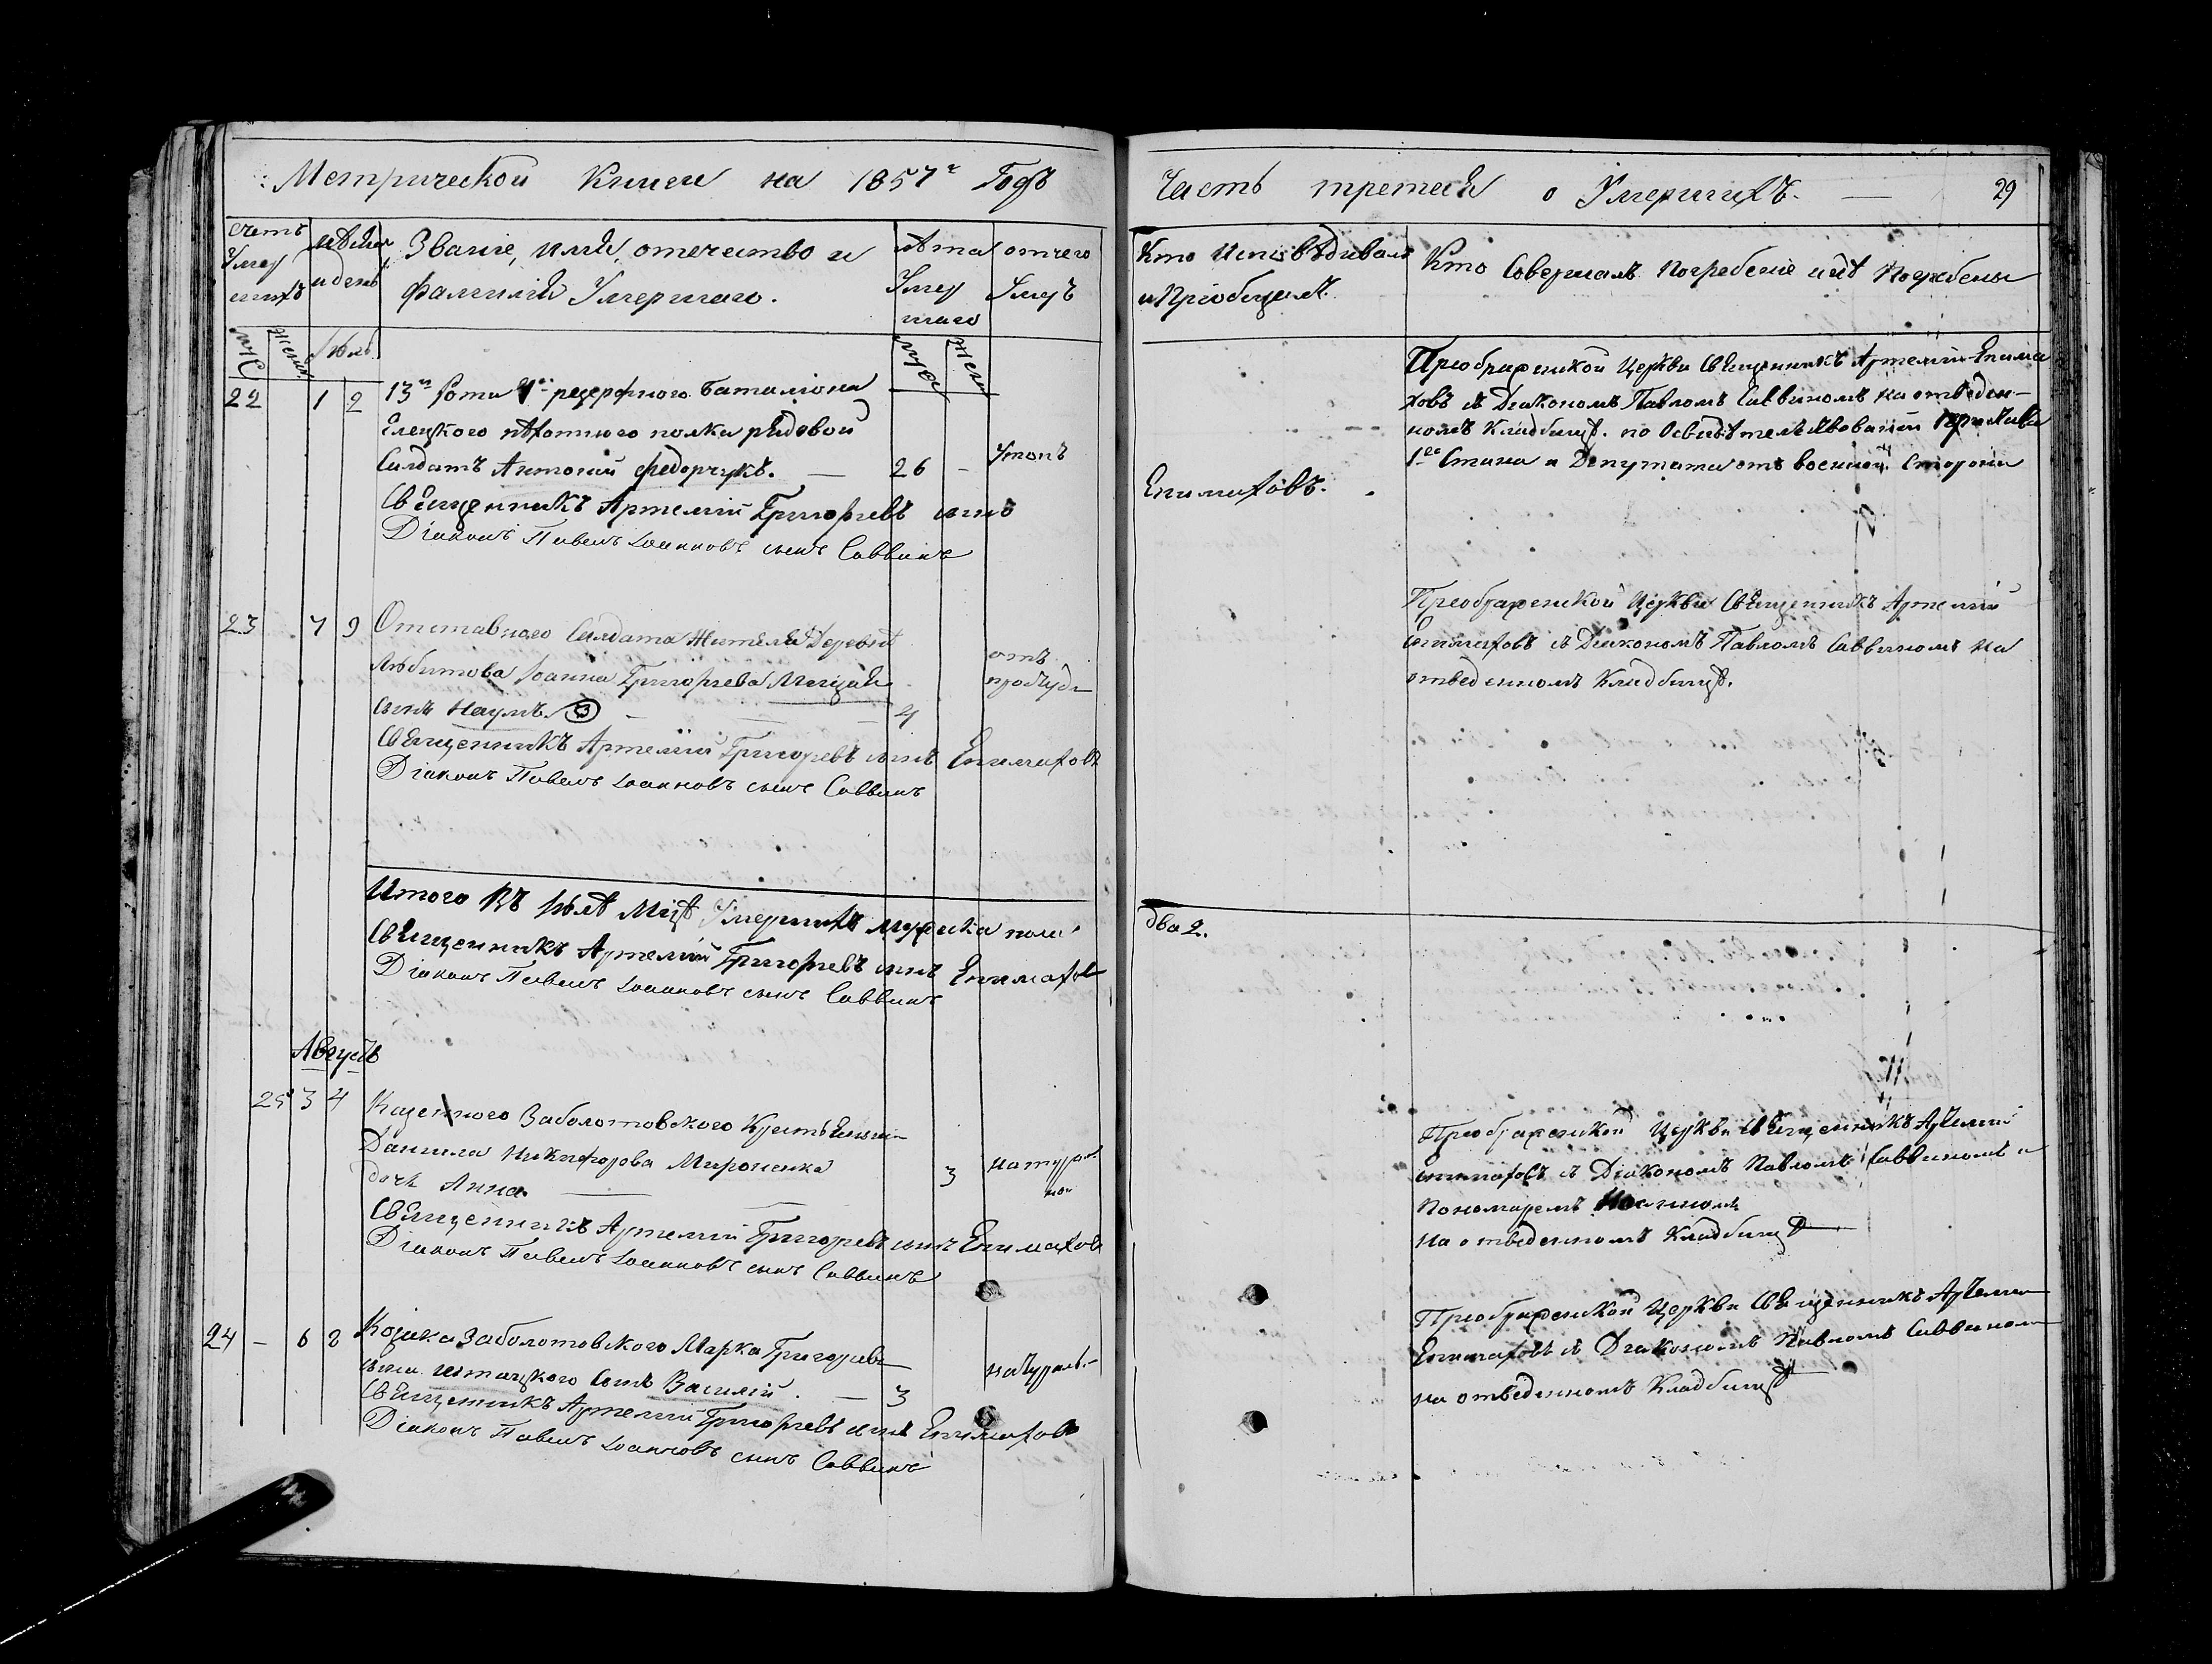 Метрической Книги на 1857ᵍ Годъ
Часть третья о Умершихъ. — 29
счетъ Умер шихъ
мѣсяц и день
Званіе, имя, отечество и
фамилія Умершаго.
лѣта Умер шаго
отчего Умеръ
Кто Исповѣдивалъ
и Пріобщалъ.
Кто Совершалъ Погребеніе и гдѣ Погребены
муж женс. Іюль муж жен
22 1 2 13й Роты 4го резерфного баталіона
Елецкого пѣхотного полка рядовой
Салдатъ Антоній Федорчукъ. — 26 - Утопъ
Священникъ Артемій Григорьевъ сынъ
Епимаховъ.
Діаконъ Павелъ Іоанновъ сынъ Саввинъ
Преображенской Церкви Священникъ Артемій Епима
ховъ съ Діакономъ Павломъ Саввиномъ на отведен-
номъ Кладбищѣ. по Освидѣтельствованіи
1го Стана и Депутата отъ военной Стороны
23 7 9 Отставного Салдата Жителя Деревни
Любитова Іоанна Григорьева
сынъ Наумъ. — 4
отъ простуды
Священникъ Артемій Григорьевъ сынъ Епимаховъ
Діаконъ Павелъ Іоанновъ сынъ Саввинъ
Преображенской Церкви Священникъ Артемій
Епимаховъ съ Діакономъ Павломъ Саввиномъ на
отведенномъ Кладбищѣ.
Итого Въ Іюлѣ Мцѣ Умершихъ мужска пола
два 2.
Священникъ Артемій Григорьевъ сынъ Епимахов
Діаконъ Павелъ Іоанновъ сынъ Саввинъ
Августъ
25 3 4 Казенного Заболотовского Крестьянина
Данила Никифорова Мироненка
дочь Анна — 3 натураль ной
Священникъ Артемій Григорьевъ сынъ Епимахов
Діаконъ Павелъ Іоанновъ сынъ Саввинъ
Преображенской Церкви Священникъ Артемій
Епимаховъ съ Діакономъ Павломъ Саввиномъ и
Пономаремъ
на отведенномъ Кладбищѣ
24 - 6 8 Козака Заболотовского Марка Григорьева
сынъ Василій. — 3 натураль-
Священникъ Артемій Григорьевъ сынъ Епимахов
Діаконъ Павелъ Іоанновъ сынъ Саввинъ
Преображенской Церкви Священникъ Артемій
Епимаховъ съ Діакономъ Павломъ Саввином
на отведенномъ Кладбищѣ